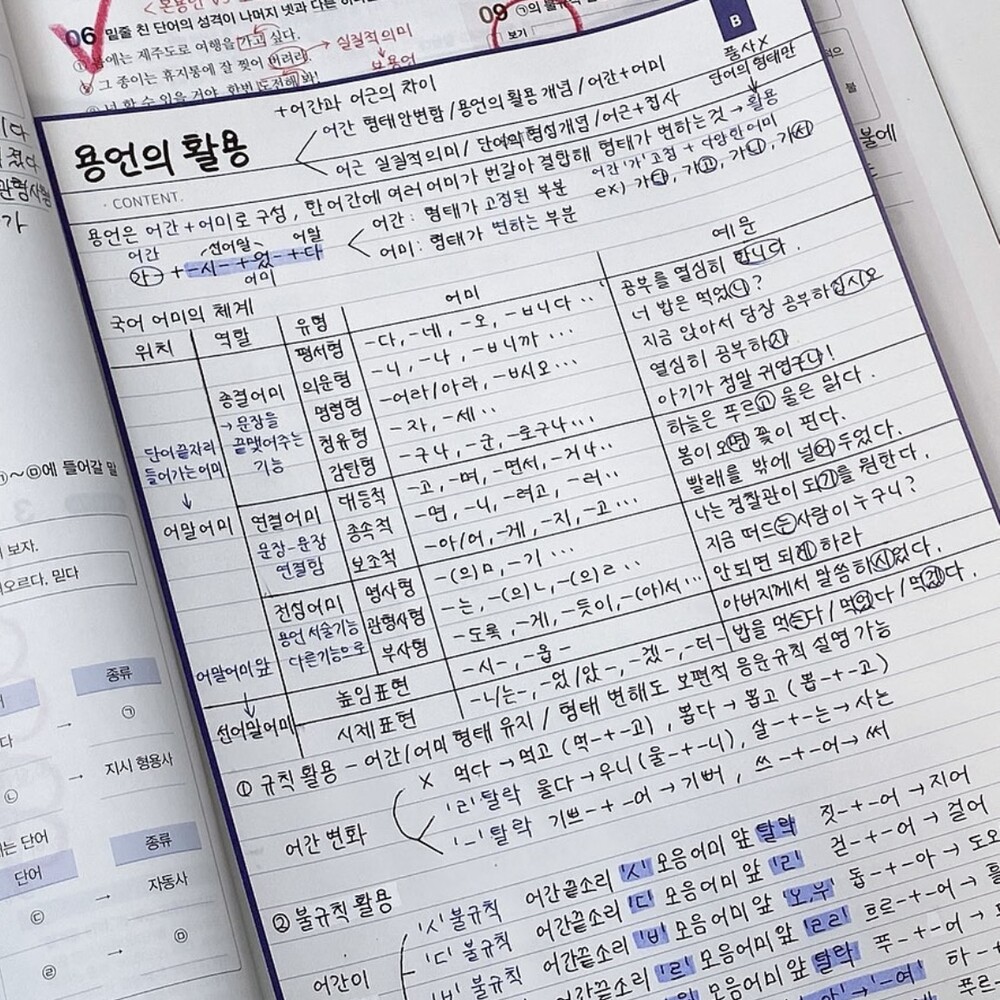 06 밑줄 친 단어의 성격이 나머지 넷과 다른
에는 제주도로 여행을 가고 싶다.
그 종이는 휴지통에 잘 찢어 버려라. → 실질적의미
보용언
09 ㉠의
보기
B
품사X
단어의 형태만
+어간과 어근의 차이
어간 형태안변함/용언의 활용 개념/어간+어미
어근 실질적의미/단어의 형성개념/어근+접사
용언의 활용
· CONTENT.
한 어간에 여러 어미가 번갈아 결합해 형태가 변하는것 → 활용
용언은 어간+어미로 구성,
어간 : 형태가 고정된 부분
어미 : 형태가 변하는 부분
어간 '가' 고정 + 다양한 어미
ex) 가다, 가고, 가니, 가서
어간 선어말 어말
가- + -시- + -었- + -다
어미
국어 어미의 체계
위치 역할 유형 어미 예문
단어끝자리 들어가는어미
↓
어말어미
종결어미
→ 문장을 끝맺어주는 기능
평서형 -다, -네, -오, -ㅂ니다 ‥ 공부를 열심히 합니다.
의문형 -니, -나, -ㅂ니까 … 너 밥은 먹었니?
명령형 -어라/아라, -ㅂ시오 … 지금 앉아서 당장 공부하십시오
청유형 -자, -세 ‥ 열심히 공부하자
감탄형 -구나, -군, -로구나 … 아기가 정말 귀엽구나!
연결어미
문장-문장 연결함
대등적 -고, -며, -면서, -거나 ‥ 하늘은 푸르고 물은 맑다.
종속적 -면, -니, -려고, -러 ‥ 봄이 오면 꽃이 핀다.
보조적 -아/어, -게, -지, -고 … 빨래를 밖에 널어 두었다.
전성어미
용언 서술기능 다른기능으로
명사형 -(으)ㅁ, -기 … 나는 경찰관이 되기를 원한다.
관형사형 -는, -(으)ㄴ, -(으)ㄹ … 지금 떠드는 사람이 누구니?
부사형 -도록, -게, -듯이, -(아)서 … 안되면 되게 하라
어말어미 앞
↓
선어말어미
높임표현 -시-, -옵- 아버지께서 말씀하시었다.
시제표현 -ㄴ/는-, -었/았-, -겠-, -더- 밥을 먹는다/먹었다/먹겠다.
① 규칙 활용 - 어간/어미 형태 유지/형태 변해도 보편적 음운규칙 설명 가능
어간 변화
X 먹다 → 먹고 (먹-+-고), 뽑다 → 뽑고 (뽑-+-고)
'ㄹ'탈락 울다 → 우니(울-+-니), 살-+-는 → 사는
'ㅡ'탈락 기쁘-+-어 → 기뻐, 쓰-+-어 → 써
② 불규칙 활용
어간이
'ㅅ'불규칙 어간끝소리 'ㅅ' 모음어미 앞 탈락 짓-+-어 → 지어
'ㄷ'불규칙 어간끝소리 'ㄷ' 모음어미 앞 'ㄹ' 걷-+-어 → 걸어
'ㅂ'불규칙 어간끝소리 'ㅂ' 모음어미 앞 '오,우' 돕-+-아 → 도오
'르' 모음어미 앞 'ㄹㄹ' 흐르-+-어 →
모음어미 앞 탈락 푸-+-어 →
'-여' 하-+
㉠~㉤에 들어갈 말
보자.
오르다, 믿다
종류
→ ㉠
㉡ → 지시 형용사
는 단어
단어 종류
㉢ → 자동사
㉣ → ㉤
관형사형
불에